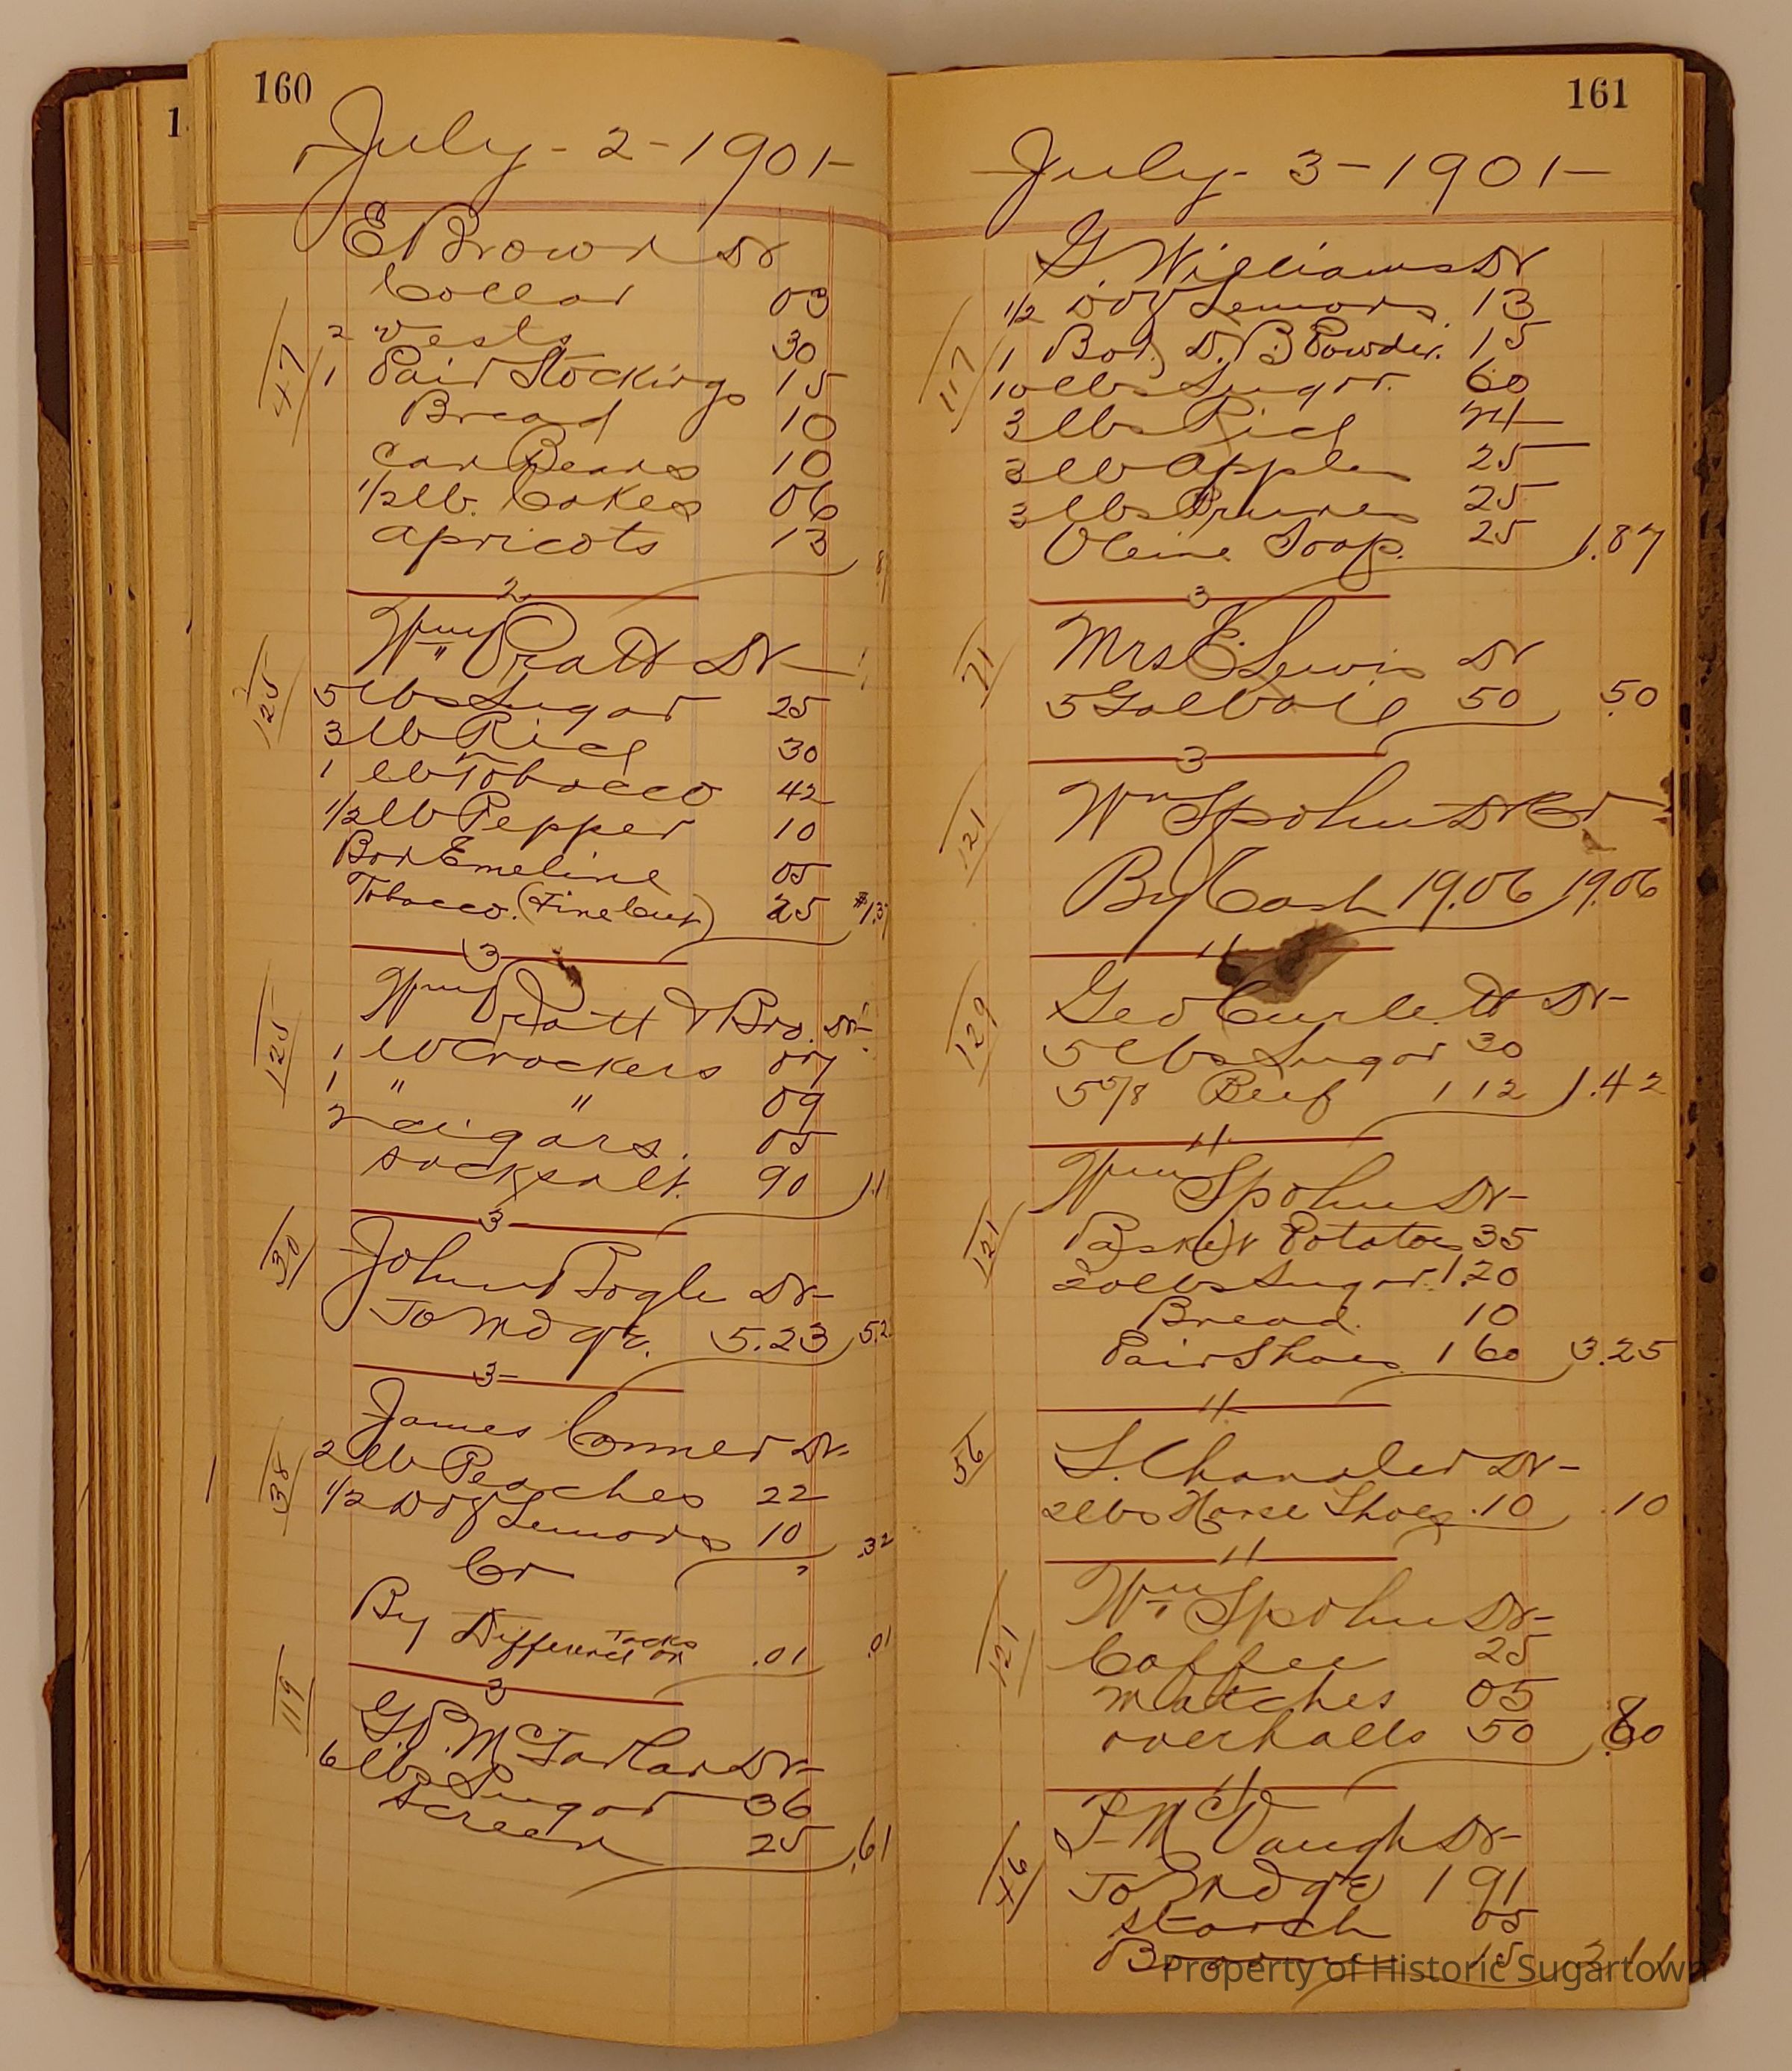 160
July - 2 - 1901 -
E Brown Dr
Collar 03
2 vests 30
47
1 Pair Stockings 15
Bread 10
Can Beans 10
1/2 lb. Cakes 06
Apricots 13
2
Wm Pratt Dr
125
5 lbs Sugar 25
3 lb Rice 30
1 lb Tobacco 42
1/2 lb Pepper 10
Box Emeline 05
Tobacco. (Fine Cut) 25 $1.37
3
Wm Pratt & Bro. Dr
125
1 lb Crackers 07
1 " " 09
2 cigars. 05
sack salt. 90
3
30
John Pogle Dr -
To Mdse. 5.23 5.2
3 -
James Conner Dr.
38
2 lb Peaches 22
1/2 Doz Lemons 10 .32
Cr
By Difference on Tacks .01 .01
3
119
G.P. McFarlan Dr -
6 lbs Sugar 36
screen 25 .61
161
July - 3 - 1901 -
G. Williams Dr
1/2 Doz Lemons. 13
117
1 Box D. B. Powder. 15
10 lbs Sugar. 60
3 lbs Rice 24
3 lb Apples 25
3 lbs Prunes 25
Oleine Soap. 25 1.87
3
71
Mrs E. Lewis Dr
5 Gal Oil 50 .50
3
121
Wm Spohn Dr Cr
By Cash 19.06 19.06
"
129
Geo Curlett Dr -
5 lbs Sugar 30
5 5/8 Beef 1 12 1.42
"
Wm Spohn Dr -
121
Basket Potatoes 35
20 lbs Sugar. 1.20
Bread. 10
Pair Shoes 1 60 3.25
"
56
L. Chandler Dr -
2 lbs Horse Shoes .10 .10
"
Wm Spohn Dr -
121
Coffee 25
matches 05
overhalls 50 .80
"
McVaugh Dr -
46
To Mdse 1 91
starch 05
15
Property of Historic Sugartown